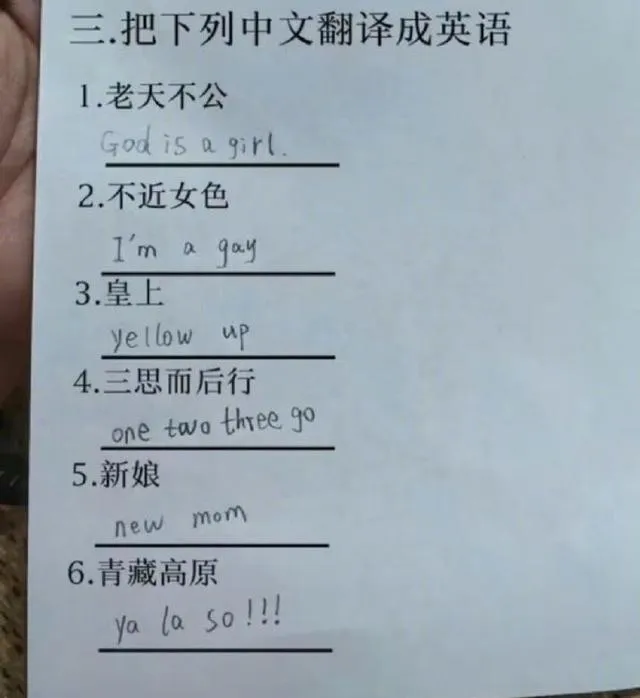 三.把下列中文翻译成英语
1.老天不公
God is a girl.
2.不近女色
I'm a gay
3.皇上
yellow up
4.三思而后行
one two three go
5.新娘
new mom
6.青藏高原
ya la so!!!